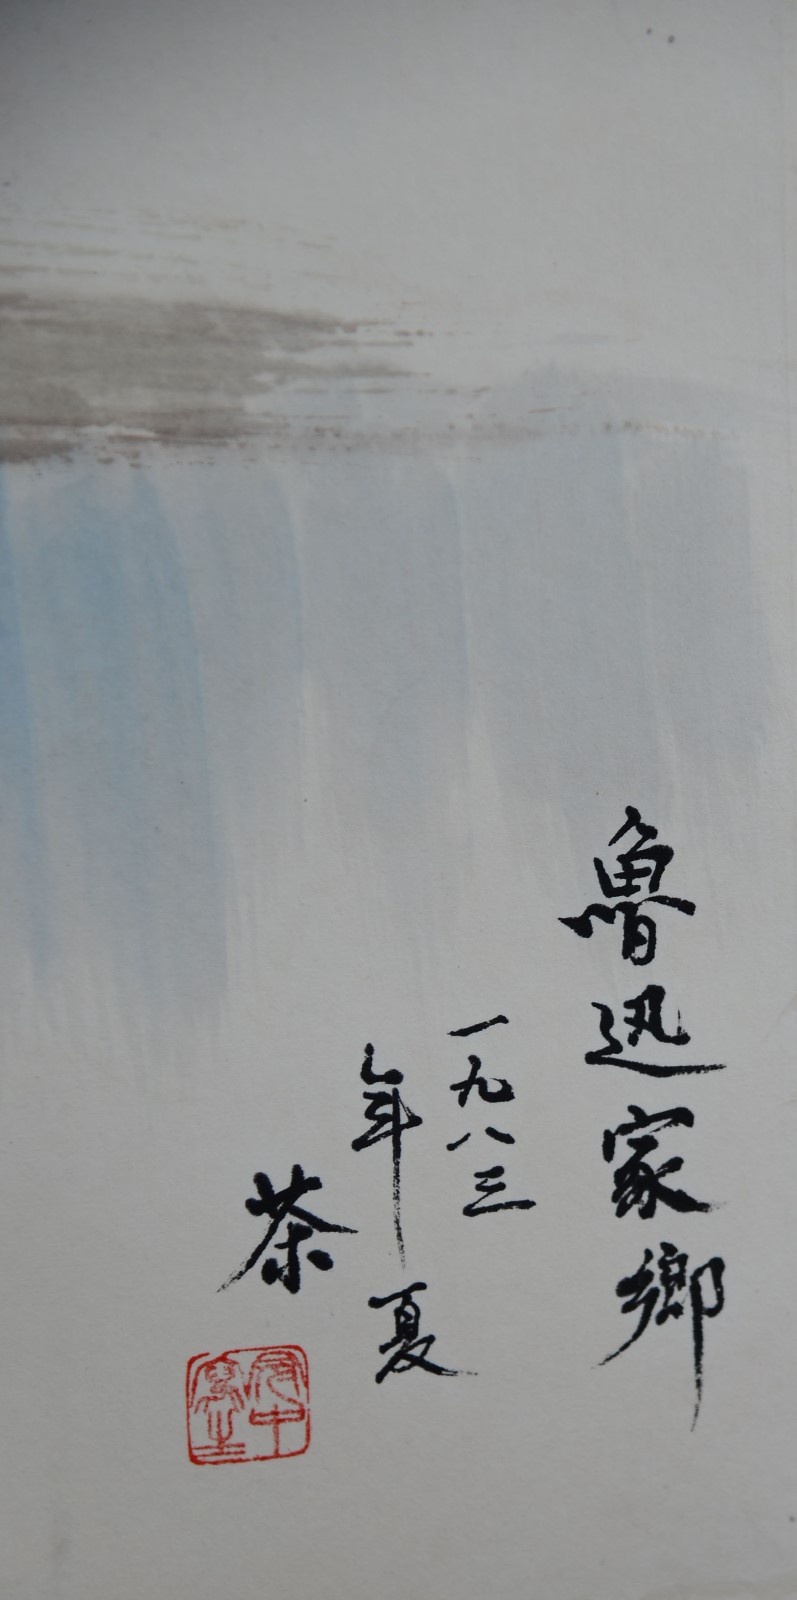 魯迅家鄉
一九八三
年夏
荼